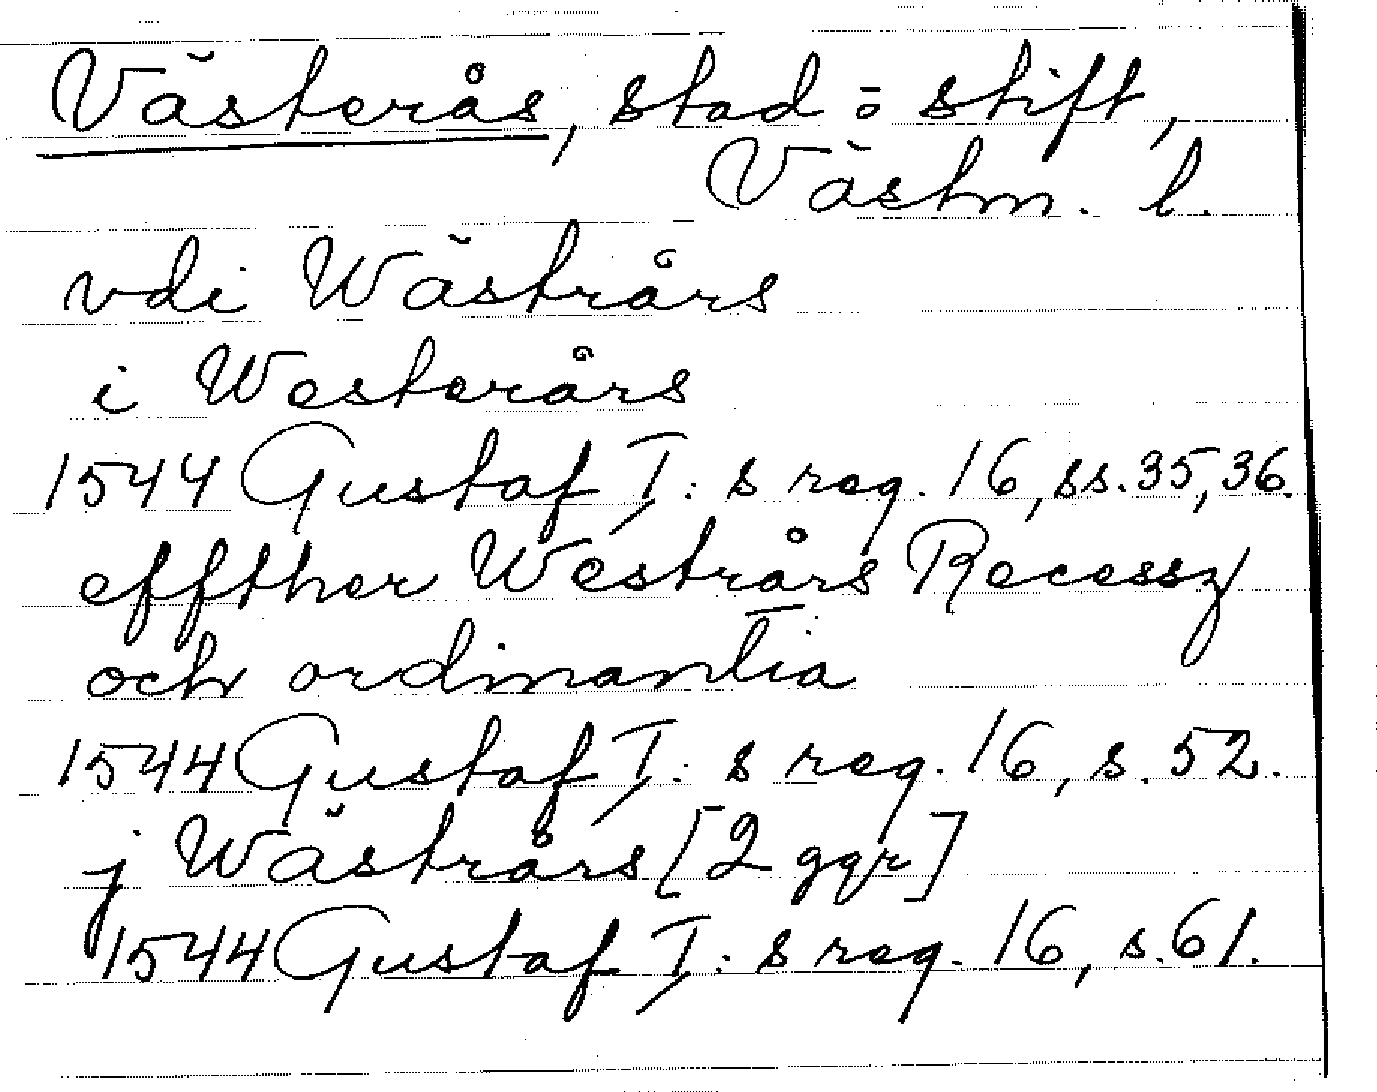 Västerås, stad o stift,
Västm. l.
vdi Wästrårs
i Westerårs
1544 Gustaf I:s reg. 16, ss. 35, 36.
effther Westrårs Recessz
och ordinantia
1544 Gustaf I:s reg. 16, s. 52.
j Wästrårs [2 ggr]
1544 Gustaf I:s reg. 16, s. 61.